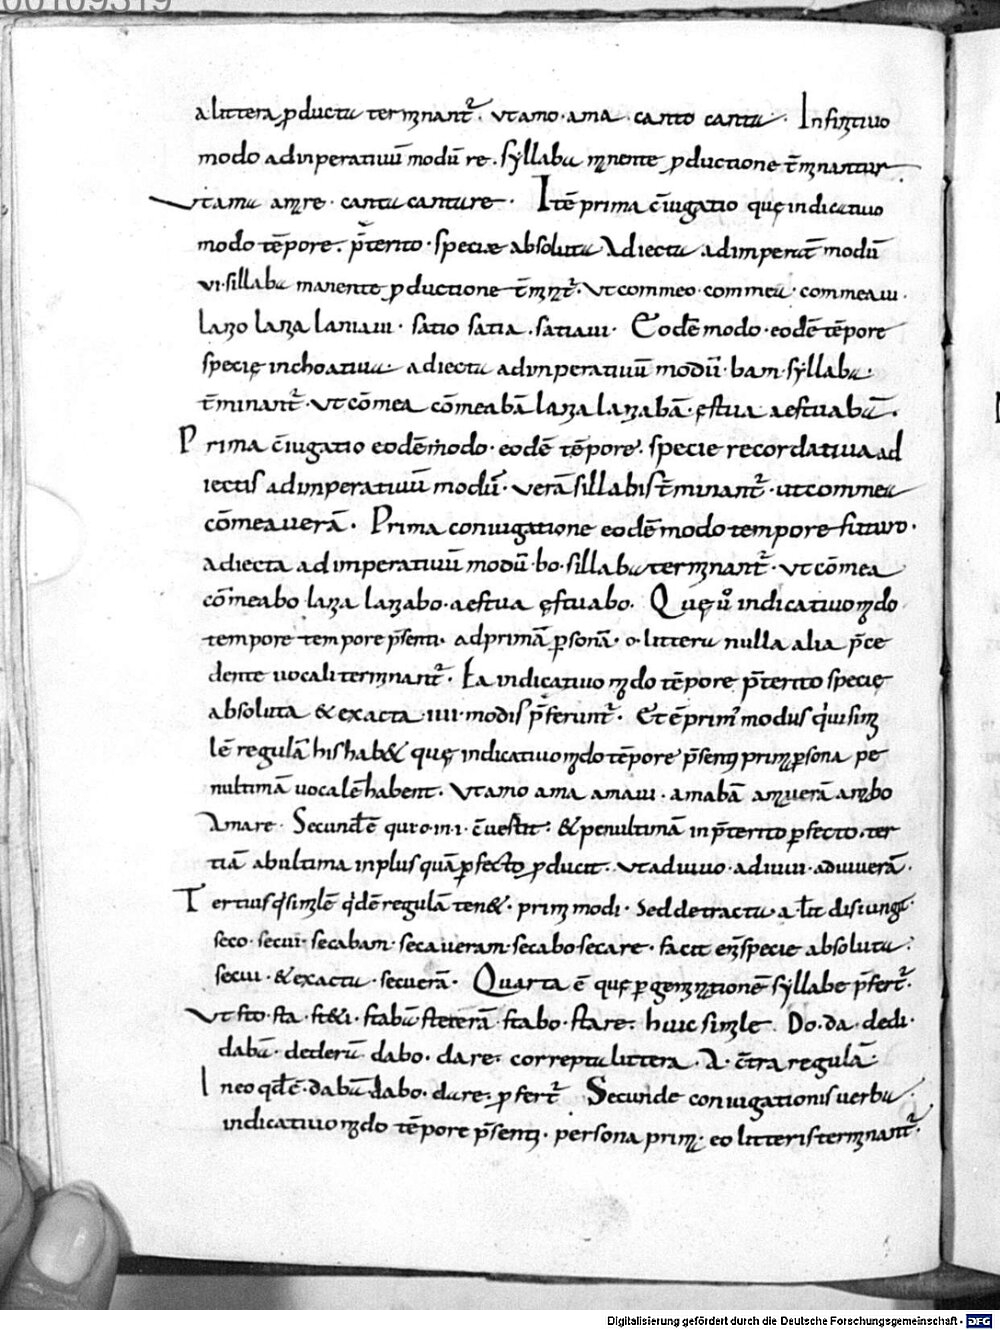 00109319
a littera ꝑductu terminant̄. ut amo. ama. canto canta. Infinitiuo
modo ad inperatiuū modū re. syllaba manente ꝓductione t̄minantur
ut ama amare. canta cantare. Itē prima c̄iugatio quę indicatiuo
modo tēpore. p̄terito. specie absoluta Adiecta ad imperat̄ modū
ui. sillaba manente ꝓductione t̄minat̄. ut commeo. commea. commeaui.
lanio lania laniaui. satio satia. satiaui. Eodē modo. eodē tēpore
specie inchoatiua. adiecta ad inperatiuū modū. bam. syllaba.
t̄minant̄. ut cōmea cōmeabā lania laniabā. ęstua aestuabā.
Prima c̄iugatio eodē modo. eodē tēpore. specie recordatiua ad
iectis ad inperatiuū modū. uerā sillabis t̄minant̄. ut commea
cōmeauerā. Prima coniugatione eodē modo tempore futuro.
adiecta ad imperatiuū modū. bo. sillaba terminant̄. ut cōmea
cōmeabo. lania laniabo. aestua ęstuabo. Quę ū indicatiuo modo
tempore tempore p̄senti. ad primā ꝑsonā. o. littera nulla alia p̄ce
dente uocali terminant̄. Ea indicatiuo modo tēpore p̄terito specię
absoluta & exacta. IIII. modis p̄ferunt̄. Et ē prim᾽ modus qui simi
lē regulā his hab& quę indicatiuo modo tēpore p̄senti prima ꝑsona pe
nultimā uocalē habent. ut amo ama amaui. amabā amauerā amabo
Amare. Secund᾽ ē qui o. in. i. c̄uertit. & penultimā in p̄terito ꝑfecto. ter
tiā ab ultima in plus quā ꝑfecto ꝓducit. ut adiuuo. adiuui. adiuuerā.
Tertius q̄ similē q̄dē regulā ten&. primi modi. Sed detracta a. lit̄ disiungit̄
seco. secui. secabam. secaueram. secabo secare. facit eni specie absoluta.
secui. & exacta. secuerā. Quarta ē quę ꝑ geminationē syllabe p̄fert̄.
ut sto. sta. st&i. stabā steterā. stabo. stare. huic simile. Do. da. dedi.
dabā. dederā dabo. dare. correpta littera. A. c̄tra regulā.
In eo qd᾽ ē. dabā. dabo. dare. ꝓfert̄. Secunde coniugationis uerba.
indicatiuo modo tēpore p̄senti. persona prima. eo litteris terminant̄.
Digitalisierung gefördert durch die Deutsche Forschungsgemeinschaft - DFG